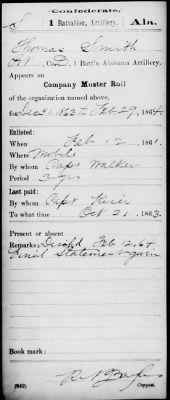 Confederate.
S 1 Battalion, Artillery. Ala.
Thomas Smith
Pvt, Co. D, 1 Batt'n Alabama Artillery.
Appears on
Company Muster Roll
of the organization named above,
for Dec 31, 1863 to Feb 29, 1864.
Enlisted:
When Feb 12, 1861.
Where Mobile
By whom Capt Walker
Period 3 yrs
Last paid:
By whom Capt
To what time Oct 31, 1863.
Present or absent
Remarks: Disch'd Feb 12, 64
Final Statements given
Book mark:
(642) Copyist.